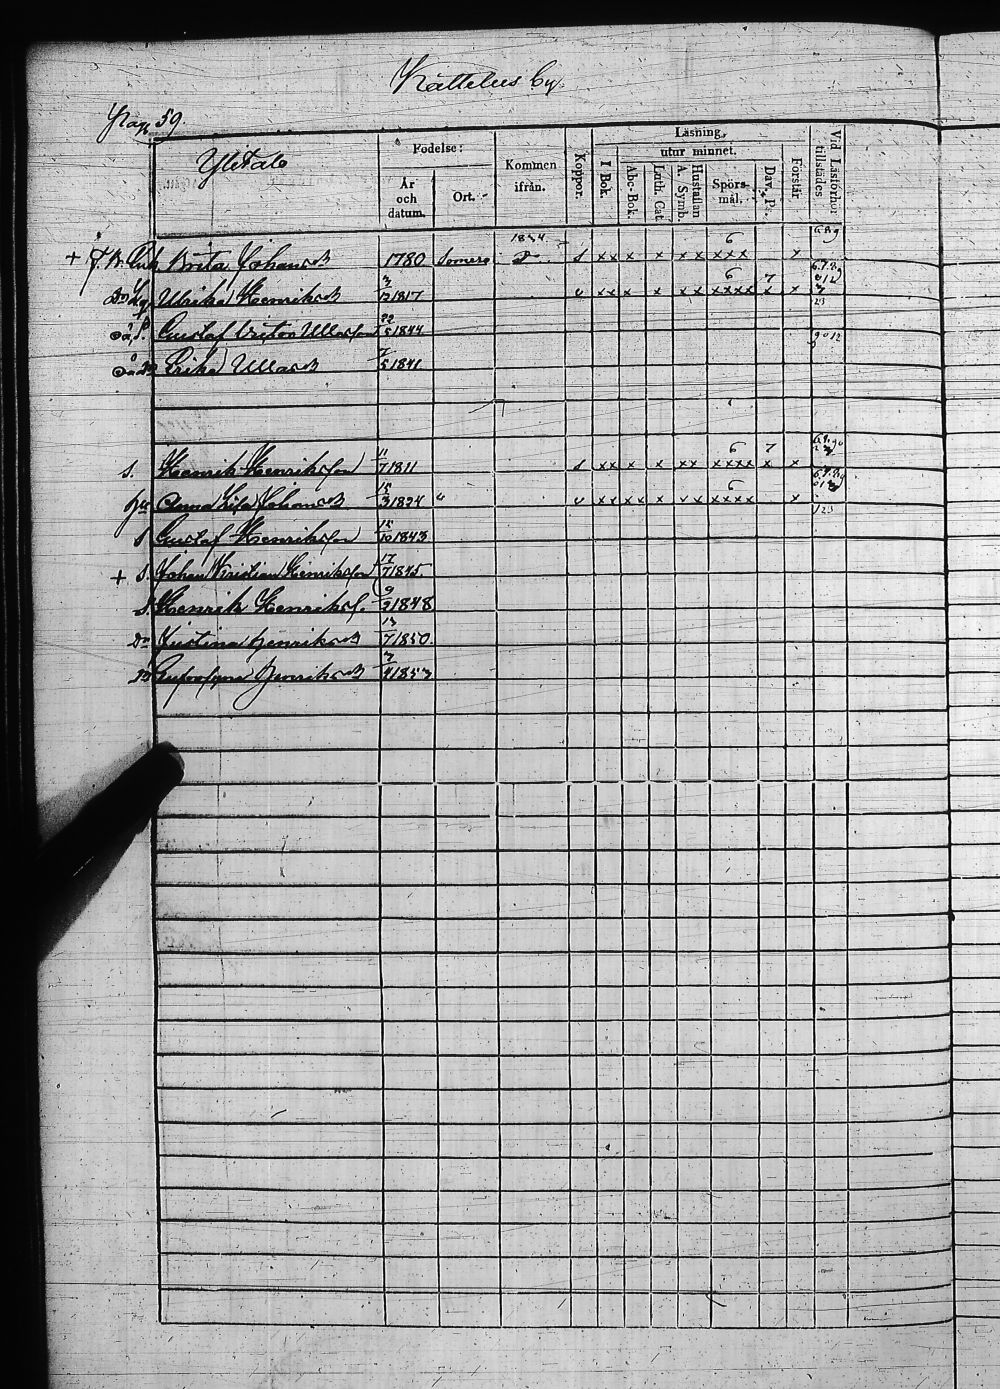 Kättelus by
Pag. 59.
Ylitalo
Födelse:
År och datum.
Ort.
Kommen ifrån.
Koppor.
Läsning,
utur minnet.
I Bok.
Abc-Bok.
Luth. Cat.
A. Symb.
Hustaflan
Spörsmål.
Dav. Ps.
Förstår
Vid Läsförhör tillstädes
+ Enk. Brita Johansd 1780 Somero 1834 s xx x x xx xxx x
Ulrika Henriksd 3/12 1817 v xx x x xx xxxx x x
Gustaf Victor Ullasson 22/5 1844
Erika Ullasd 7/5 1841
S. Henrik Henriksson 11/7 1811 s xx x x xx xxxx x x
hu Anna Lisa Johansd 15/3 1824 " v xx xx x xx xxxx x
S Gustaf Henriksson 15/10 1843
+ S. Johan Kristian Henriksson 17/7 1845.
S Henrik Henrikss. 9/2 1848
Dr Justina Henriksd 13/7 1850.
Dr Henriksd 3/4 1853